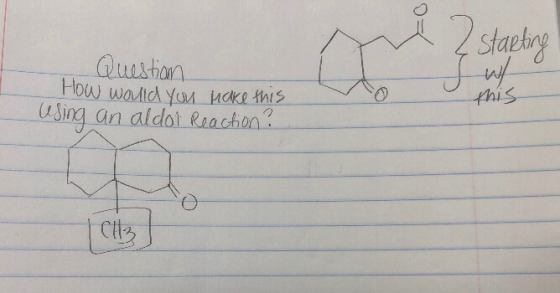 O
Starting
w/
this
O
Question
How would you make this
using an aldol Reaction?
O
CH3